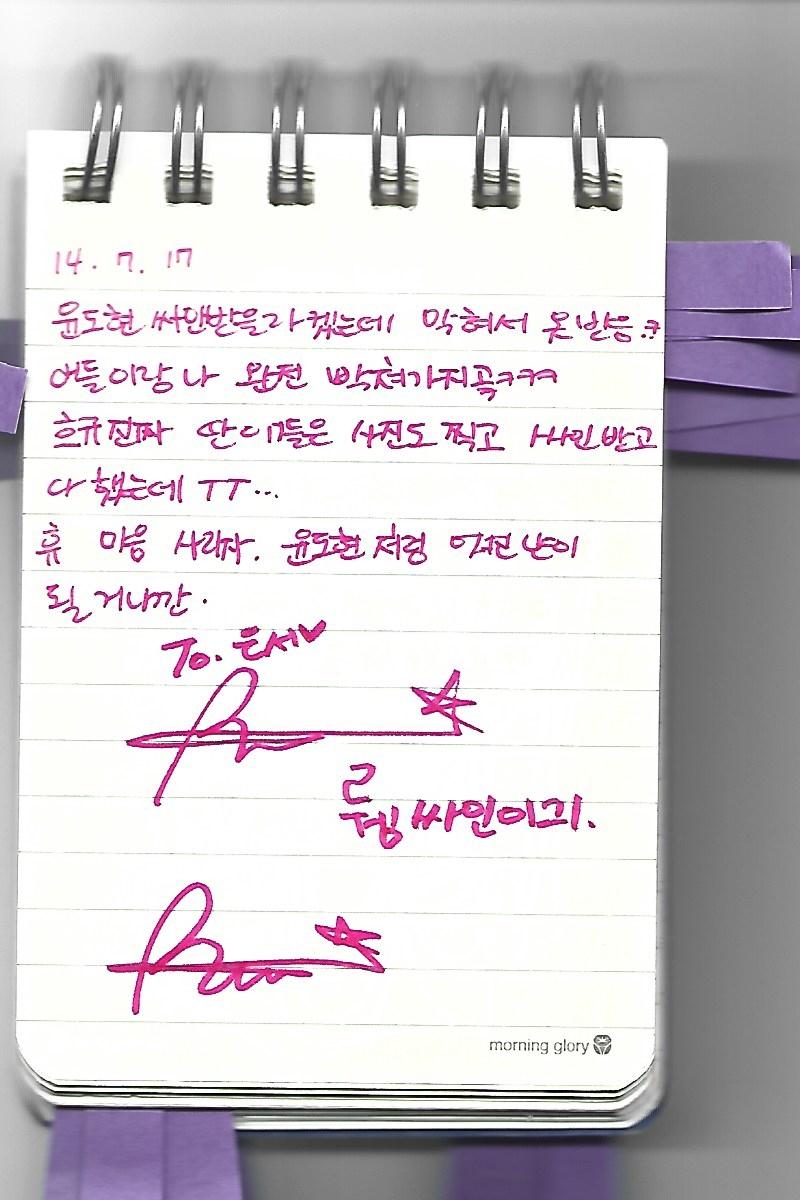 14. 7. 17
윤도현 싸인받을라 켔는데 막혀서 못받음.ㅋ
어들이랑 나 완전 빡쳐가지곸ㅋㅋㅋ
흐규진짜 딴 아들은 사진도 찍고 싸인받고
다 했는데 TT...
휴 마음 사리자. 윤도현처럼 될거니깐.
To. 은서♥
싸인이긔.
morning glory